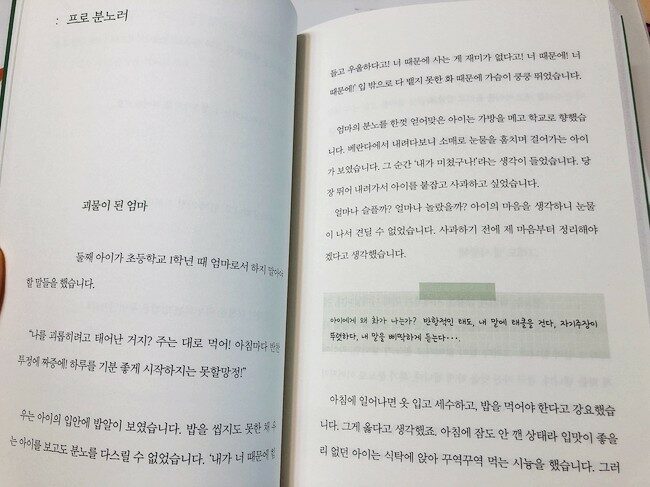 : 프로 분노러
괴물이 된 엄마
둘째 아이가 초등학교 1학년 때 엄마로서 하지 말아야
할 말들을 했습니다.
"나를 괴롭히려고 태어난 거지? 주는 대로 먹어! 아침마다 반찬
투정에 짜증에! 하루를 기분 좋게 시작하지는 못할망정!"
우는 아이의 입안에 밥알이 보였습니다. 밥을 씹지도 못한 채 우
는 아이를 보고도 분노를 다스릴 수 없었습니다. '내가 너 때문에 힘
들고 우울하다고! 너 때문에 사는 게 재미가 없다고! 너 때문에! 너
때문에!' 입 밖으로 다 뱉지 못한 화 때문에 가슴이 쿵쿵 뛰었습니다.
엄마의 분노를 한껏 얻어맞은 아이는 가방을 메고 학교로 향했습
니다. 베란다에서 내려다보니 소매로 눈물을 훔치며 걸어가는 아이
가 보였습니다. 그 순간 '내가 미쳤구나!'라는 생각이 들었습니다. 당
장 뛰어 내려가서 아이를 붙잡고 사과하고 싶었습니다.
얼마나 슬플까? 얼마나 놀랐을까? 아이의 마음을 생각하니 눈물
이 나서 견딜 수 없었습니다. 사과하기 전에 제 마음부터 정리해야
겠다고 생각했습니다.
아이에게 왜 화가 나는가? 반항적인 태도, 내 말에 태클을 건다, 자기주장이
뚜렷하다, 내 말을 삐딱하게 듣는다···.
아침에 일어나면 옷 입고 세수하고, 밥을 먹어야 한다고 강요했습
니다. 그게 옳다고 생각했죠. 아침에 잠도 안 깬 상태라 입맛이 좋을
리 없던 아이는 식탁에 앉아 꾸역꾸역 먹는 시늉을 했습니다. 그러